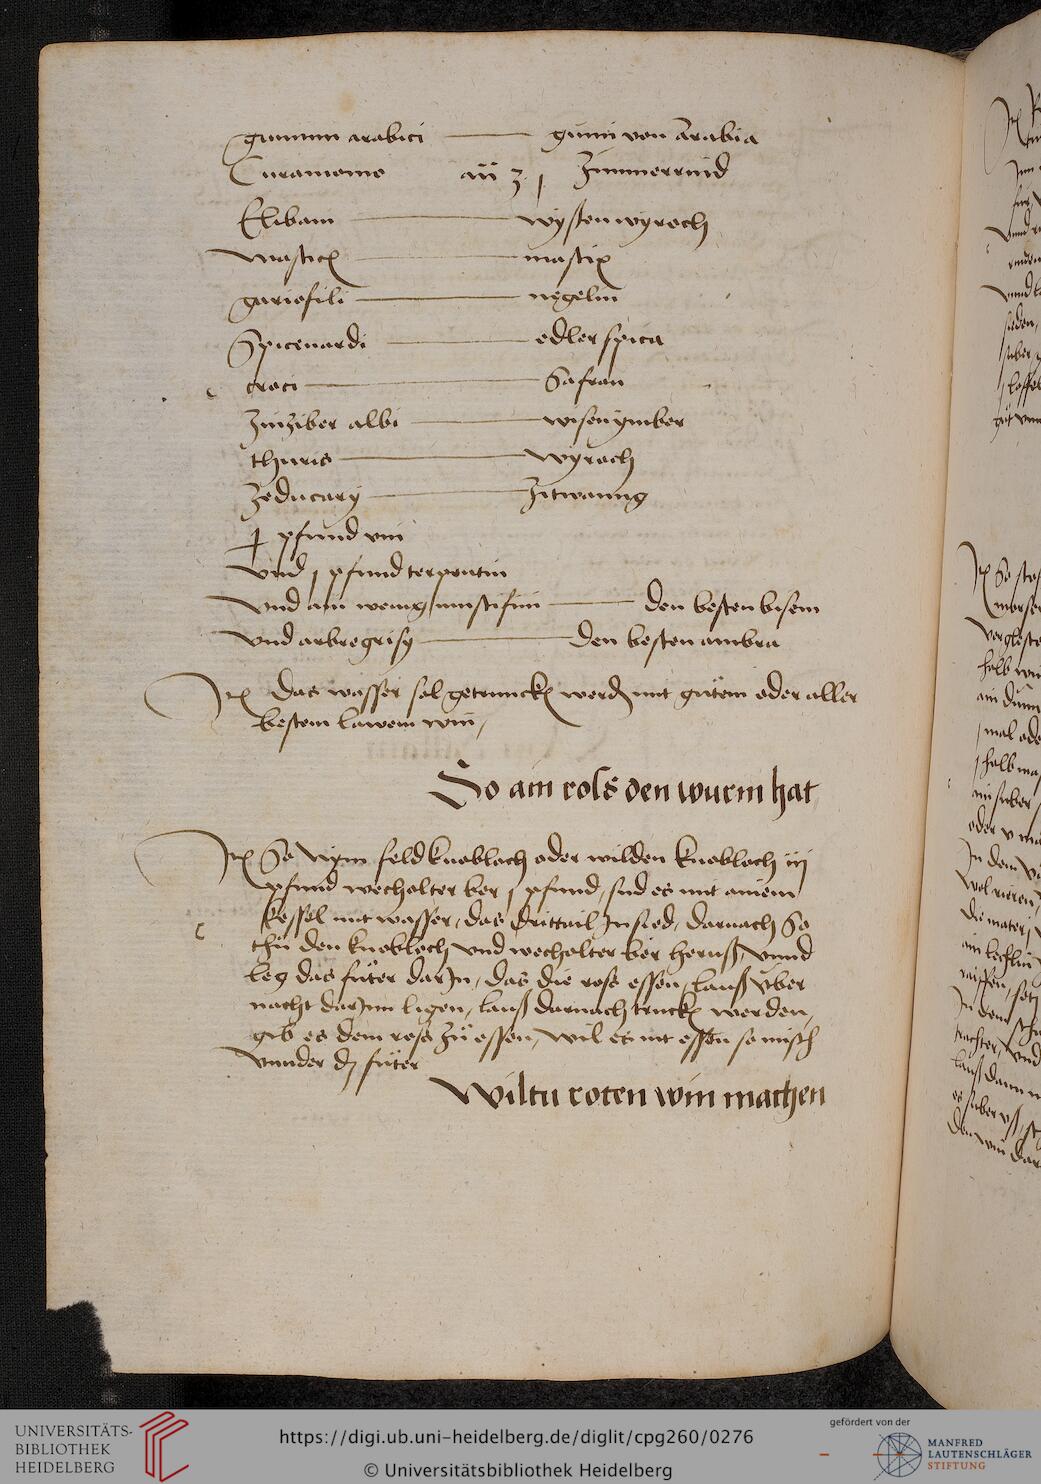 gummi arabici — gumi von Arabia
Cinamomo añ ʒ j Zimmerrind
Elibani — wysten wyroch
Mastick — mastix
gariofili — negelin
Spicenardi — edler spica
croci — Safran
Zinziber albi — wisen ymber
thuris — wyroch
Zeducary — Zitwanng
j pfund vin
vnd j pfund terpentin
vnd ain wenig — den besten bisem
vnd arbregrisy — den besten ambra
Jt das wasser sol getrunck werd mit gütem oder aller
bestem lawem win,
So ain ross den wurm hat
Jt So Nym feld knobloch oder wilden knobloch iij
pfund wecholter ber j pfund, sud es mit ainem
kessel mit wasser, das drittail Jn sied, darnach So
thü den knobloch vnd wecholter ber heruß, vnnd
leg das füter dar Jn, das die ross essen, lauß vber
nacht dar Jnn ligen, lauß darnach truck werden,
gib es dem ross zü essen, wil es nit essen so misch
vnnder d füter
Wiltu roten win machen
UNIVERSITÄTS-
BIBLIOTHEK
HEIDELBERG
https://digi.ub.uni-heidelberg.de/diglit/cpg260/0276
© Universitätsbibliothek Heidelberg
gefördert von der
MANFRED
LAUTENSCHLÄGER
STIFTUNG